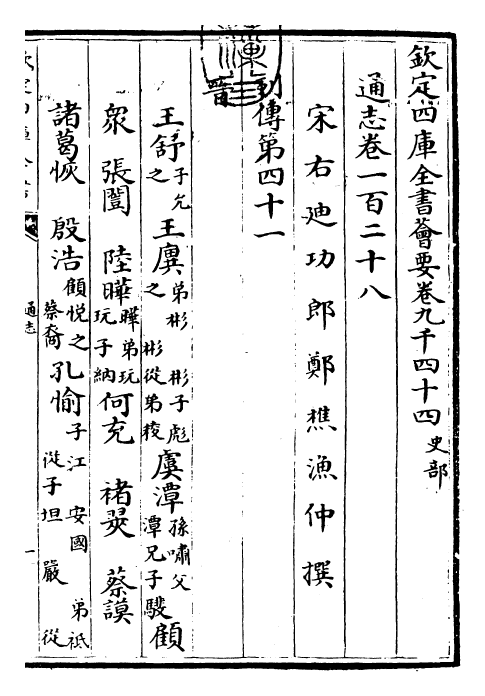 欽定四庫全書薈要卷九千四十四 史部
通志卷一百二十八
宋右迪功郎鄭樵漁仲撰
列傳第四十一
晉
王舒 子允之 王廙 弟彬 彬子彪之 彬從弟稜 虞潭 孫嘯父 潭兄子騣 顧
衆 張闓 陸曄 曄弟玩 玩子納 何充 褚翜 蔡謨
諸葛恢 殷浩 顧悦之 蔡裔 孔愉 子江 安國 弟祗 從子坦 嚴 從
通志
一